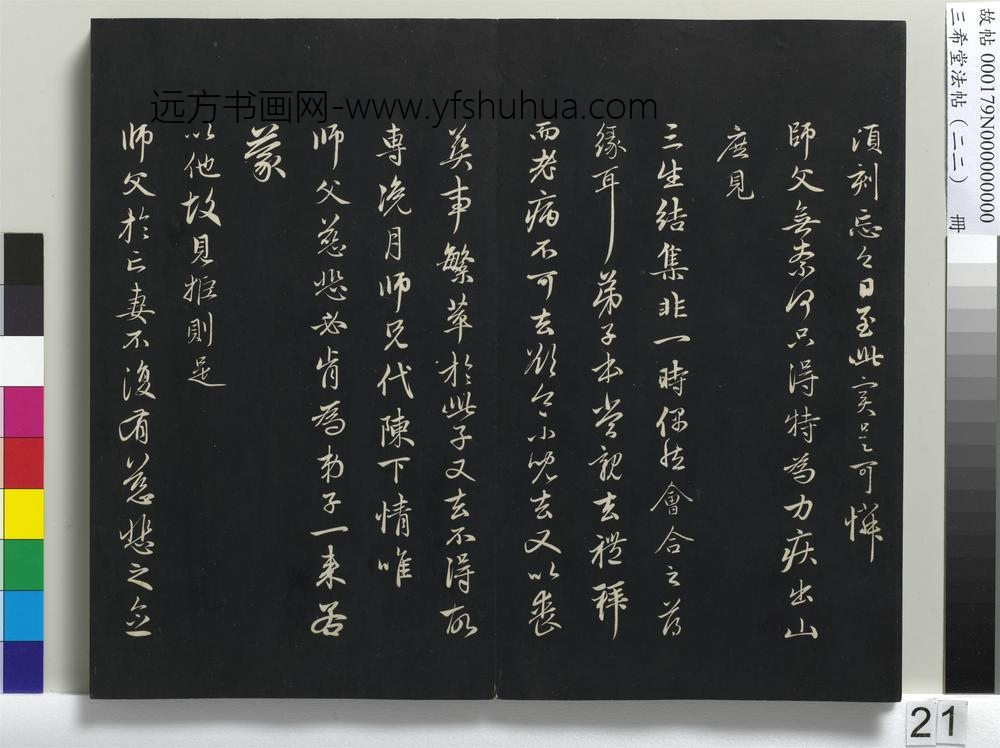 故帖 000179N000000000
三希堂法帖（二二） 冊
远方书画网-www.yfshuhua.com
湏刻忘之日至此實是可憐
師父無柰何只得特為力疾出山
庶見
三生結集非一時偶然會合之薄
緣耳弟子本當親去禮拜
而老病不可去欲令小兒去又以喪
葬事繁萃於此子又去不得故
專浼月師兄代陳下情唯
師父慈悲必肯為弟子一来若
蒙
以他故見拒則是
師父於亡妻不復有慈悲之念
21